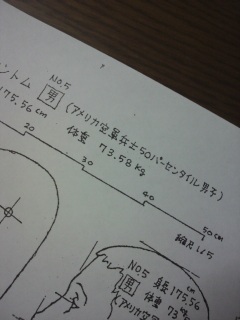 No.5
ントム 男 (アメリカ空軍兵士50パーセンタイル男子)
175.56 cm
体重 73.58 Kg
20
30
40
50 cm
縮尺 1/5
No.5 身長 175.56 cm
男 体重 73
(アメリカ空軍